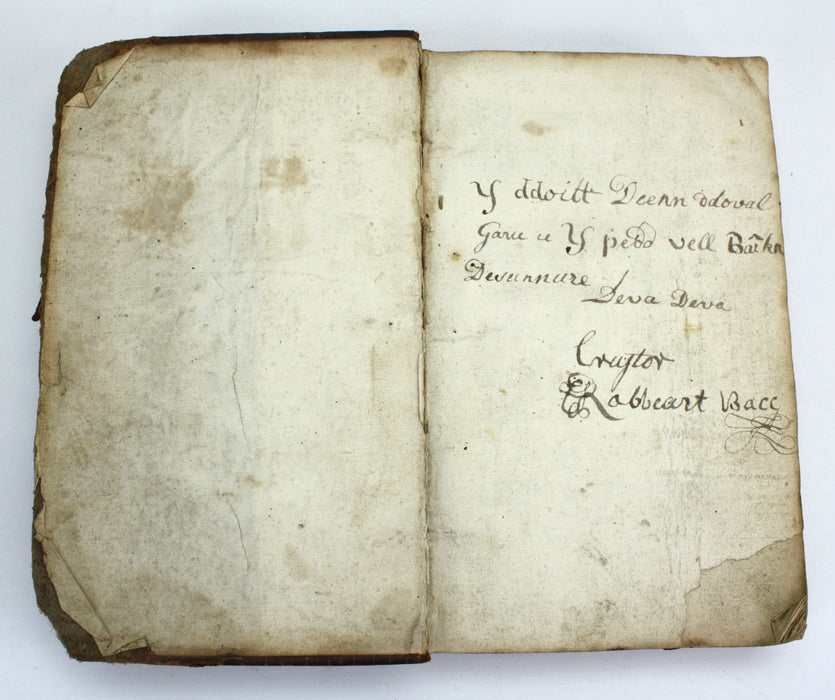 Y ddoitt Deenn ddoval
Garu u Y pedd vell
Desunnure
Deva Deva
Cruſtor
Robbeart Bacc